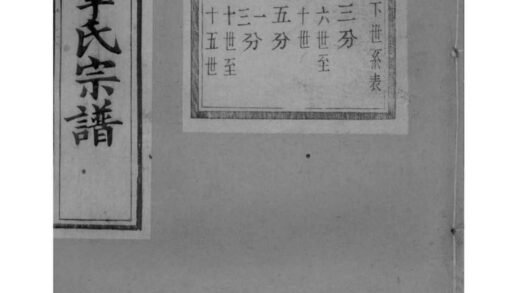 下世系表
三分
六世至
十世
五分
一
三分
十世至
十五世
氏宗譜